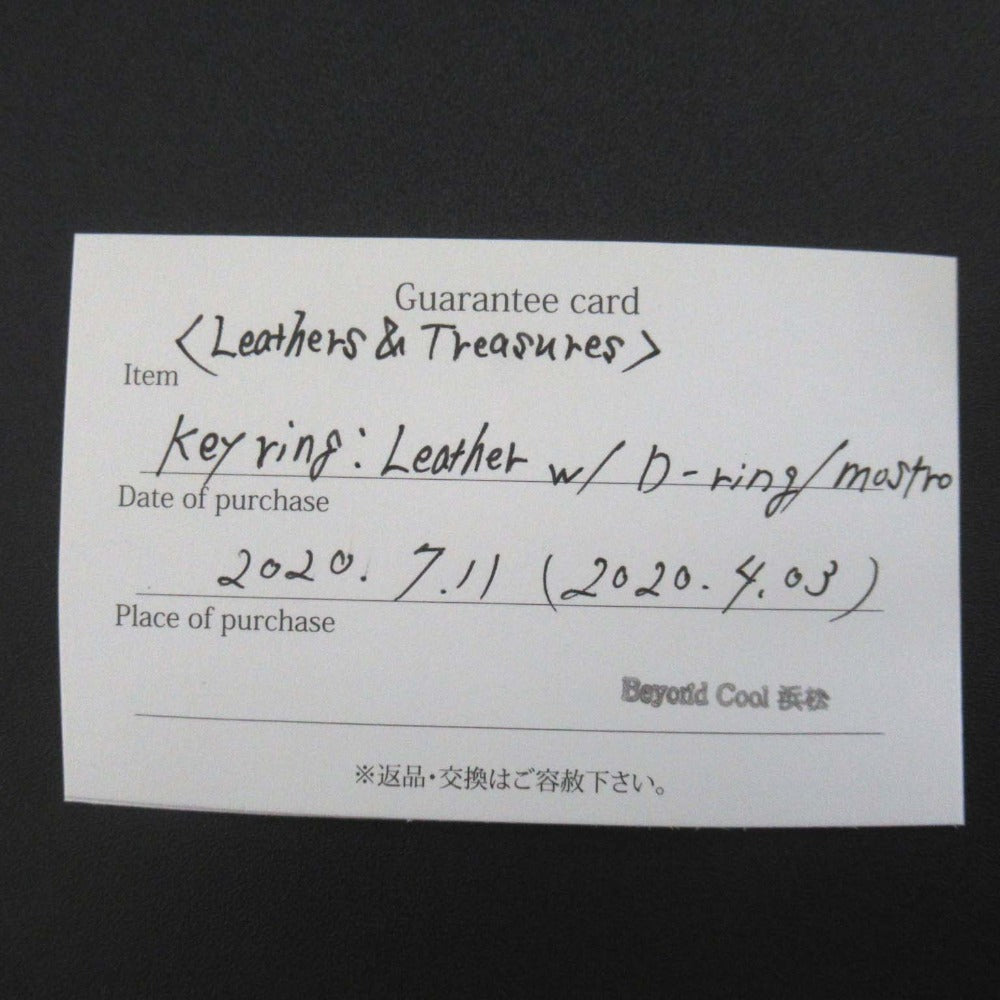 Guarantee card
<Leathers & Treasures>
Item
Key ring: Leather w/ D-ring/mostro
Date of purchase
2020. 7.11 (2020. 4.03)
Place of purchase
Beyond Cool 浜松
※返品・交換はご容赦下さい。